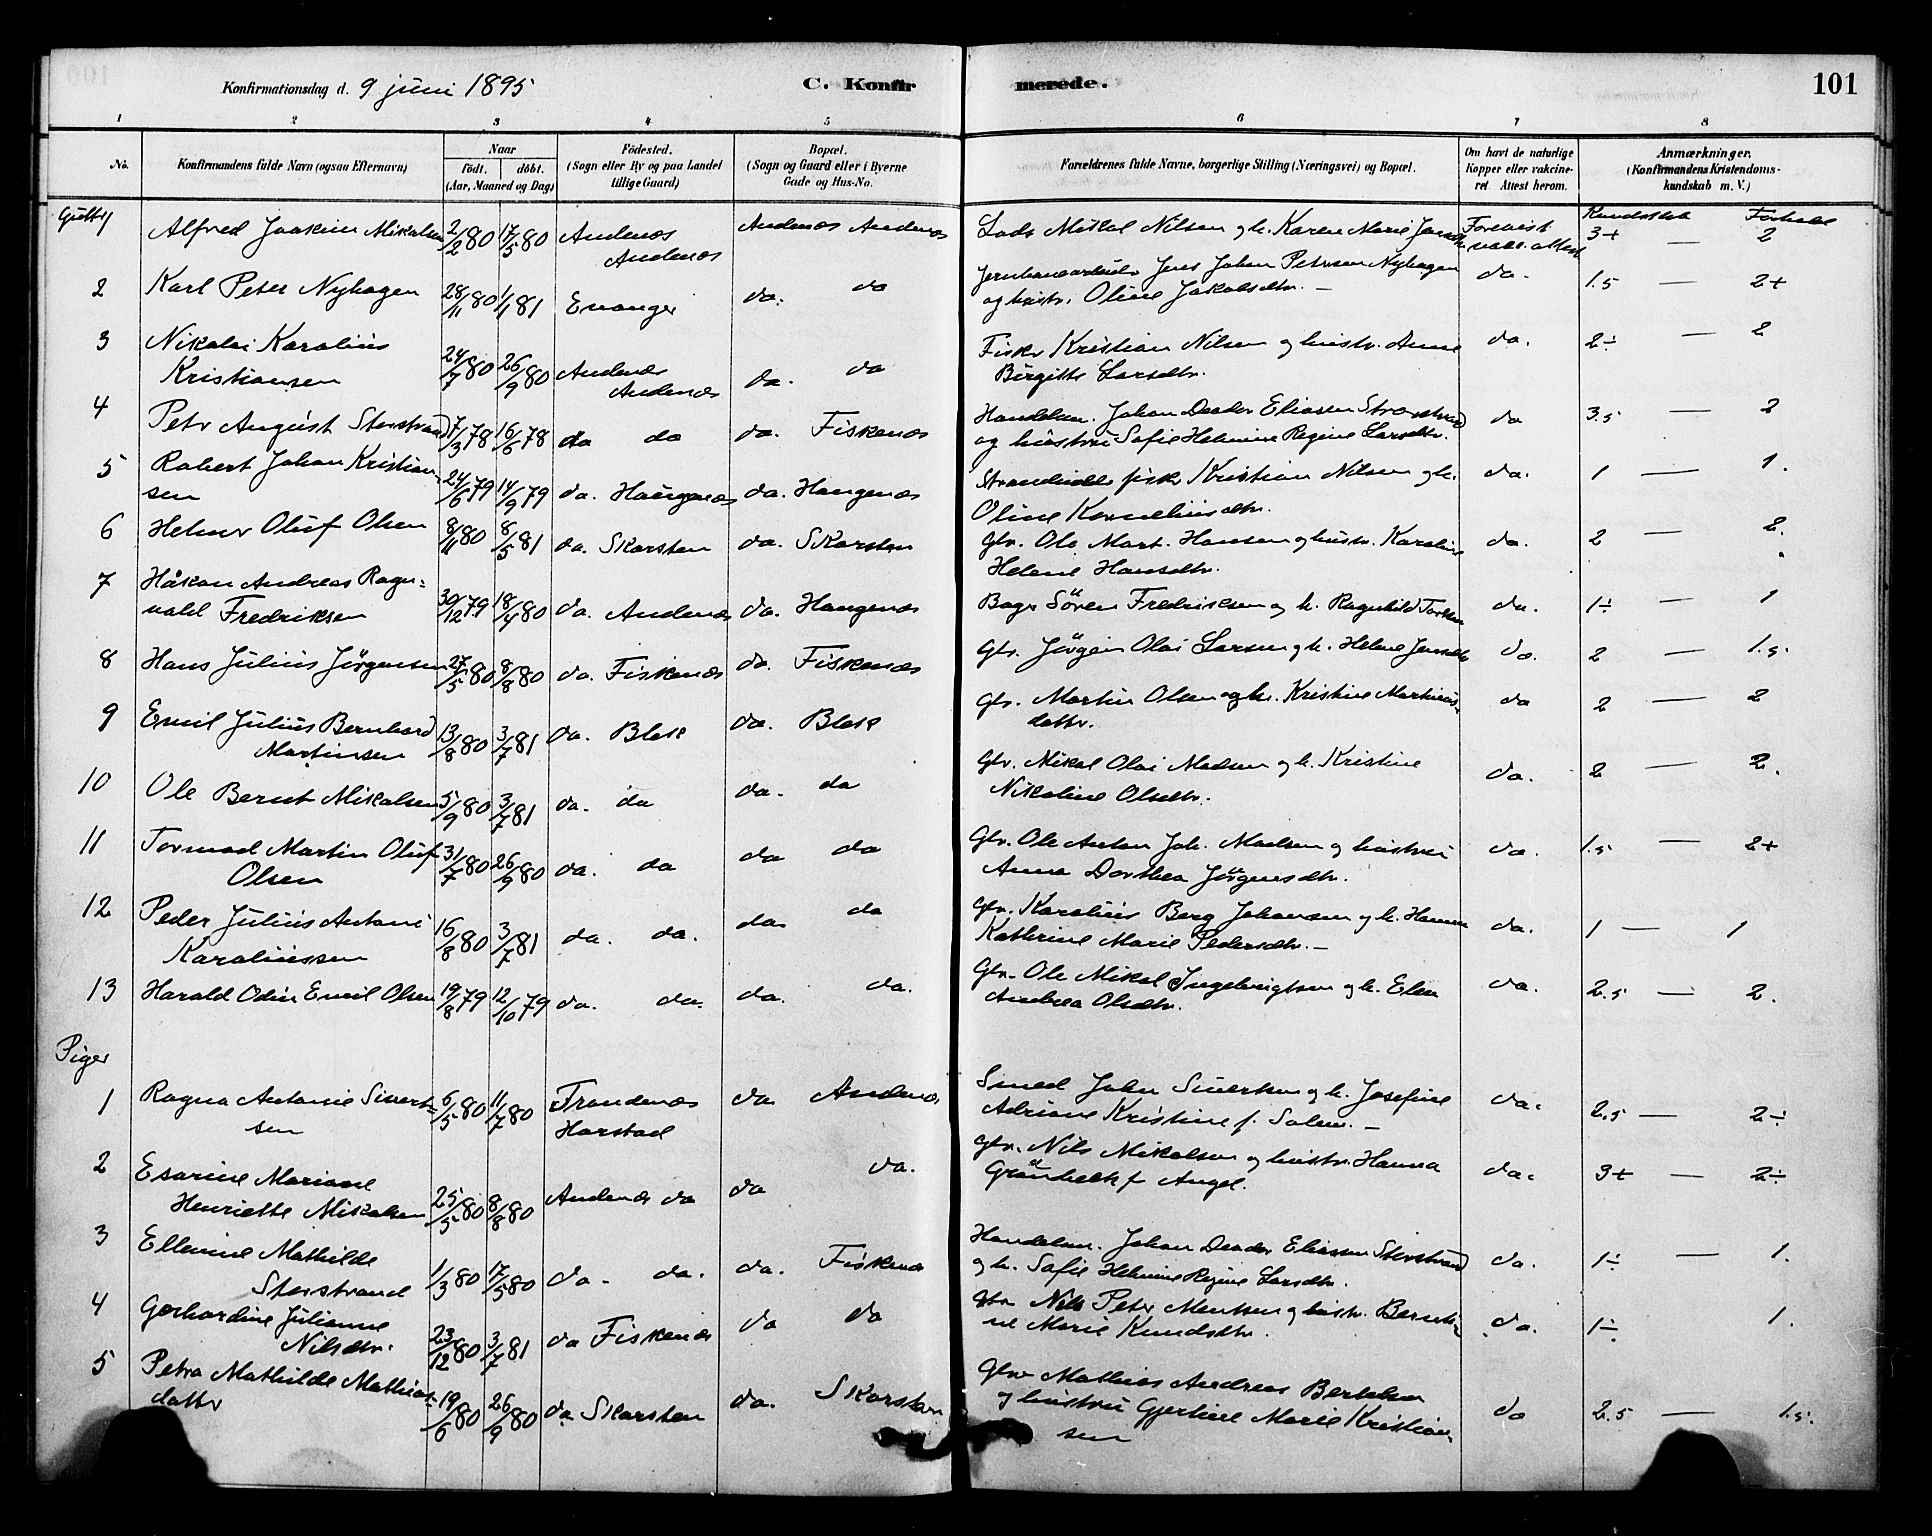 Konfirmationsdag d. 9 juni 1895 C. Konfirmerede. 101
1 2 3 4 5 6 7 8
No. Konfirmandens fulde Navn (ogsaa Efternavn) Naar födt. döbt. (Aar, Maaned og Dag) Födested. (Sogn eller By og paa Landet tillige Gaard) Bopæl. (Sogn og Gaard eller i Byerne Gade og Hus-No. Forældrenes fulde Navne, borgerlige Stilling (Næringsvei) og Bopæl. Om havt de naturlige Kopper eller vakcineret. Attest herom. Anmærkninger. (Konfirmandens Kristendomskundskab m. V.)
Kundskab Forhold
Gutter
1 Alfred Joakim Mikalsen 2/2 80 17/5 80 Andenæs Andenæs Andenæs Andenæs Lods Mikal Nilsen og h. Karen Marie Jensdtr. Forevist vakc. attest 3+ — 2
2 Karl Peter Nyhagen 28/11 80 1/1 81 Evanger do. do Jens Johan Petersen Nyhagen
og hustr. Oline Jakobsdtr. — do. 1.5 — 2+
3 Nikolai Karolius
Kristiansen 24/7 80 26/9 80 Andenæs Andenæs do. do Fisker Kristian Nilsen og hustr. Anne
Birgitte Larsdtr. do. 2÷ — 2
4 Petr August Storstrand 7/3 78 16/6 78 do do do. Fiskenæs Handelsm. Johan Deodor Eliassen Storstrand
og hustru Sofie Helmine Regine Larsdtr. do 3.5 — 2
5 Robert Johan Kristian-
sen 24/6 79 14/9 79 do. Haugnæs do. Haugenæs fisker Kristian Nilsen og h.
Oline Korneliusdtr. do. 1 — 1.
6 Helmer Oluf Olsen 8/11 80 8/5 81 do. Skarsten do. Skarsten Gbr. Ole Mart. Hansen og hustr. Karoline
Helene Hansdtr. do. 2 — 2.
7 Håkon Andreas Ragn-
vald Fredriksen 30/12 79 18/4 80 do. Andenæs do. Haugenæs Bager Sören Fredriksen og h. Ragnhild do. 1÷ — 1
8 Hans Julius Jörgensen 27/5 80 8/8 80 do. Fiskenæs do. Fiskenæs Gbr. Jörgen Olai Larsen og h. Helene Jensdtr do. 2 — 1.5.
9 Emil Julius Bernhard
Martinsen 13/8 80 3/7 81 do. Blese do. Blese Gbr. Martin Olsen og h. Kristine Martinus-
dattr. do 2 — 2
10 Ole Bernt Mikalsen 5/9 80 3/7 81 do. do do. do Gbr. Mikal Olai Madsen og h. Kristine
Nikoline Olsdtr. do. 2 — 2.
11 Tormod Martin Oluf
Olsen 31/7 80 26/9 80 do. do do do Gbr. Ole Anton Joh. Madsen og hustru
Anna Dorthea Jörgensdtr. do. 1.5 — 2+
12 Peder Julius Antoni
Karoliussen 16/8 80 3/7 81 do. do. do. do Gbr. Karolius Berg Johansen og h. Hanna
Kathrine Marie Pedersdtr. — do. 1 — 1
13 Harald Odin Emil Olsen 19/8 79 12/10 79 do. do. do. do. Gbr. Ole Mikal Ingebrigtsen og h. Elen
Andrea Olsdtr. do. 2.5 — 2.
Piger
1 Ragna Antonie Sivert-
sen 6/5 80 11/7 80 Trondenæs
Harstad do Andenæs Smed John Sivertsen og h. Josefine
Adriane Kristine f. Solem. — do. 2.5 — 2÷
2 Esarine Mariane
Henriette Mikalsen 25/5 80 8/8 80 Andenæs do do do. Gbr. Nils Mikalsen og hustr. Hanna
f. Angel. do. 3+ — 2÷
3 Ellevine Mathilde
Storstrand 1/3 80 17/5 80 do. do. do. Fiskenæs Handelsm. Johan Deodor Eliassen Storstrand
og h. Sofie Helmine Regine Larsdtr. do. 1÷ — 1.
4 Gerhardine Julianne
Nilsdtr. 23/12 80 3/7 81 do Fiskenæs do do Gbr Nils Peter Mentsen og hustr. Bernti-
ne Marie Knudsdtr. do. 1÷ 1.
5 Petra Mathilde Mathias-
dattr 19/6 80 26/9 80 do Skarsten do. Skarsten Gbr Mathias Andreas Bertelsen
og hustru Gjertine Marie Kristian-
sen do 2.5 — 1.5.